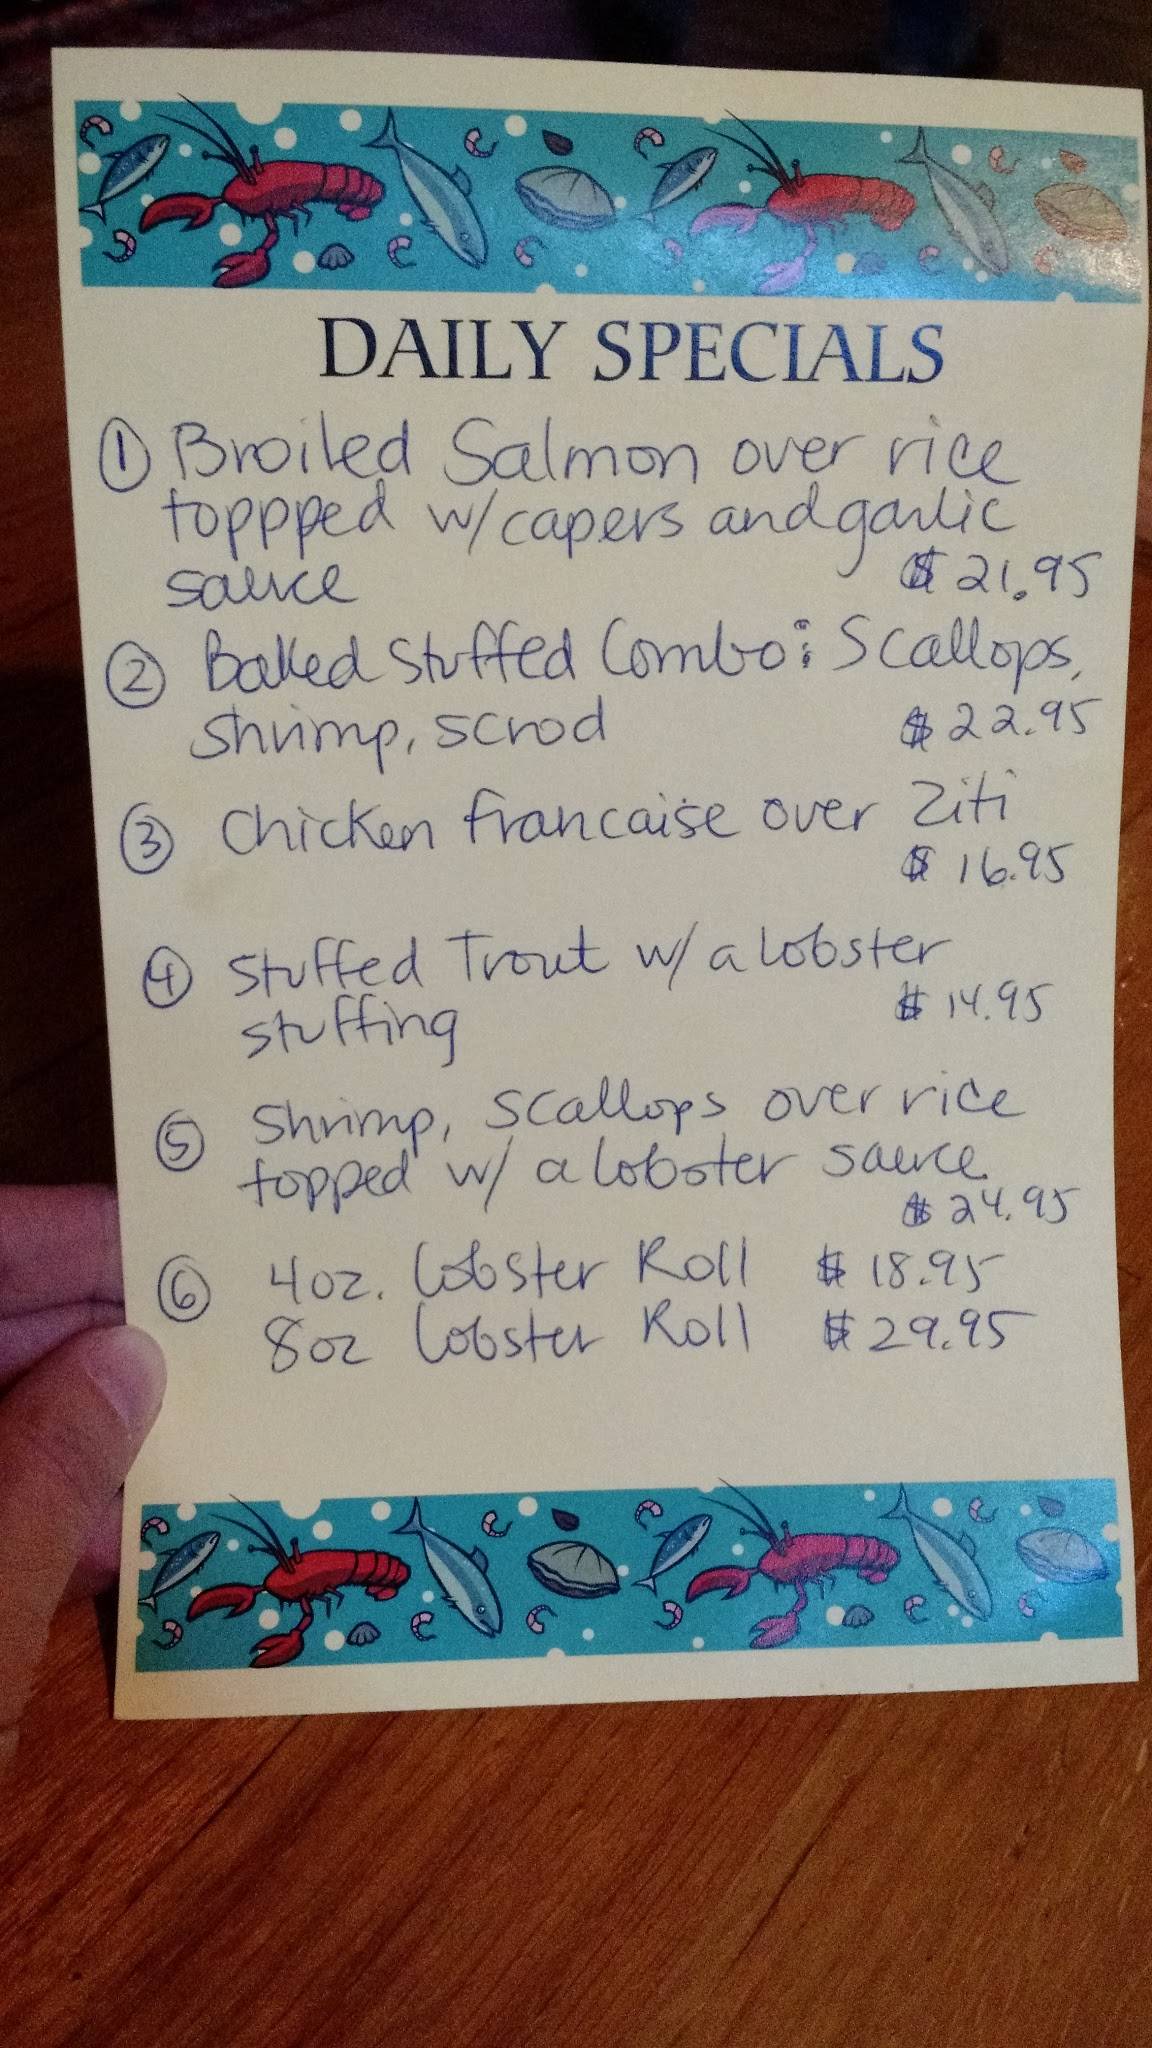 DAILY SPECIALS
① Broiled Salmon over rice
toppped w/capers and garlic
sauce $21.95
② Baked Stuffed Combo: Scallops,
Shrimp, scrod $22.95
③ Chicken francaise over Ziti
$16.95
④ Stuffed Trout w/ a lobster
stuffing $14.95
⑤ Shrimp, Scallops over rice
topped w/ a lobster sauce
$24.95
⑥ 4oz. Lobster Roll $18.95
8oz Lobster Roll $29.95